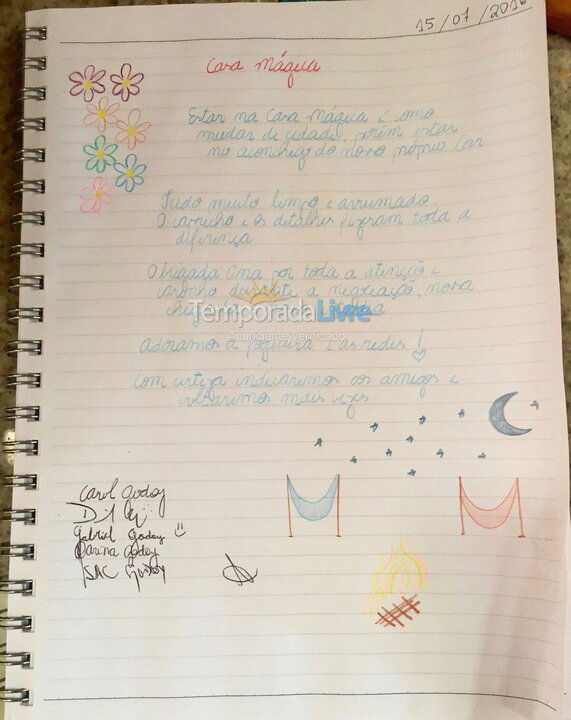 15/07/2016
Casa Mágua
Estar na Casa Mágua é como
mudar de cidade, porém estar
no aconchego do nosso próprio lar
Tudo muito limpo e arrumado
O capricho e os detalhes fizeram toda a
diferença
Obrigada Ana por toda a atenção e
carinho durante a negociação, nossa
TemporadaLivre
Anunciante verificado
Adoramos a fogueira e as redes!
Com certeza indicaremos aos amigos e
voltaremos mais vezes
Carol Godoy
Gabriel Godoy
Karina Godoy